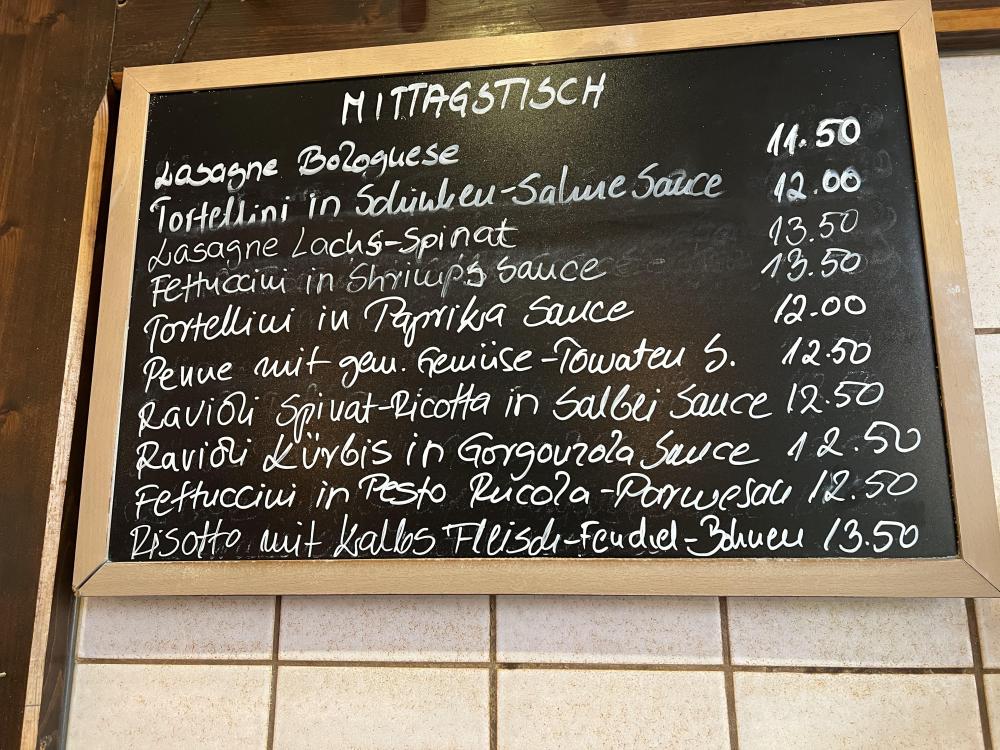 MITTAGSTISCH
Lasagne Bolognese 11.50
Tortellini in Schinken-Sahne Sauce 12.00
Lasagne Lachs-Spinat 13.50
Fettuccini in Shrimps Sauce 13.50
Tortellini in Paprika Sauce 12.00
Penne mit gem. Gemüse-Tomaten S. 12.50
Ravioli Spinat-Ricotta in Salbei Sauce 12.50
Ravioli Kürbis in Gorgonzola Sauce 12.50
Fettuccini in Pesto Rucola-Parmesan 12.50
Risotto mit Kalbs Fleisch-Fenchel-Bohnen 13.50